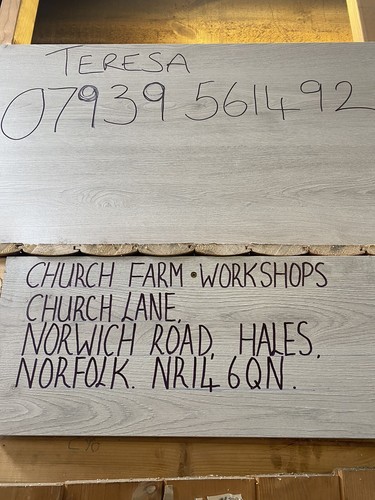 TERESA
07939 561492
CHURCH FARM • WORKSHOPS
CHURCH LANE,
NORWICH ROAD, HALES,
NORFOLK. NR14 6QN.